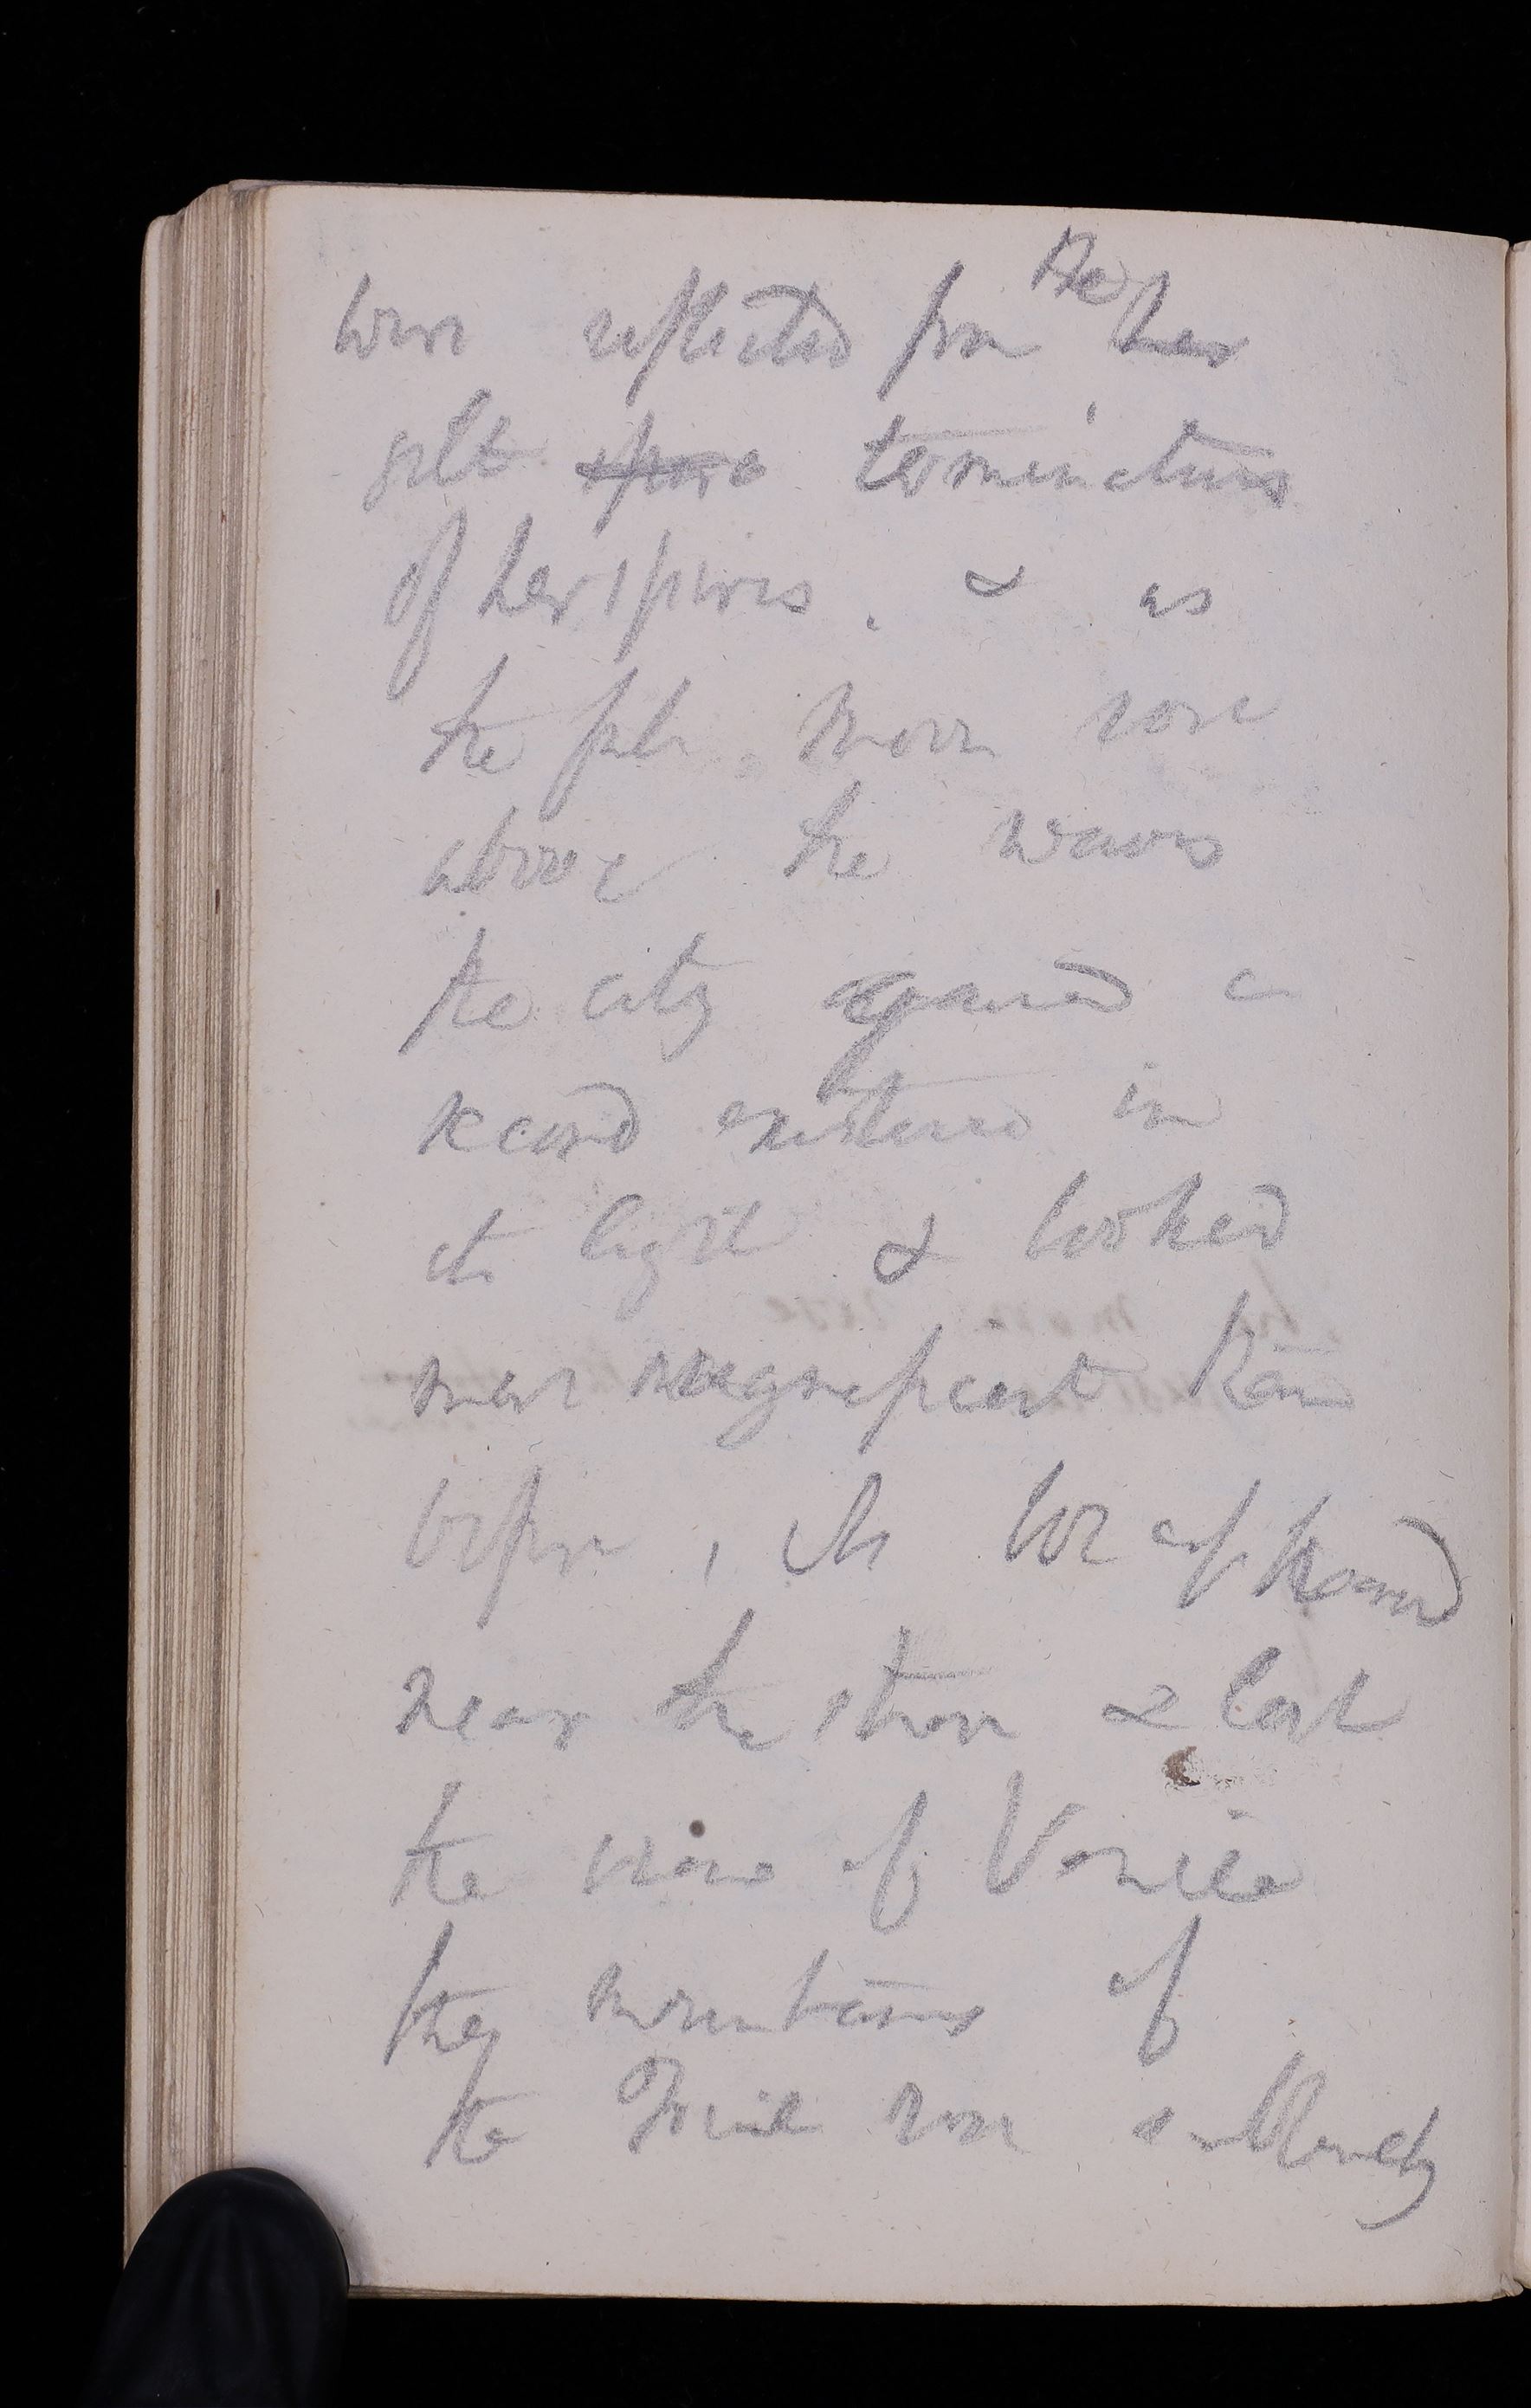 were reflected from the her
gilt spire terminations
of her spires. & as
the full moon rose
above the waves
the city gained a
second existence in
its light & looked
more magnificent than
before, As we approached
near the shore & lost
the view of Venice
they mountains of
the Friuli rose sublimely